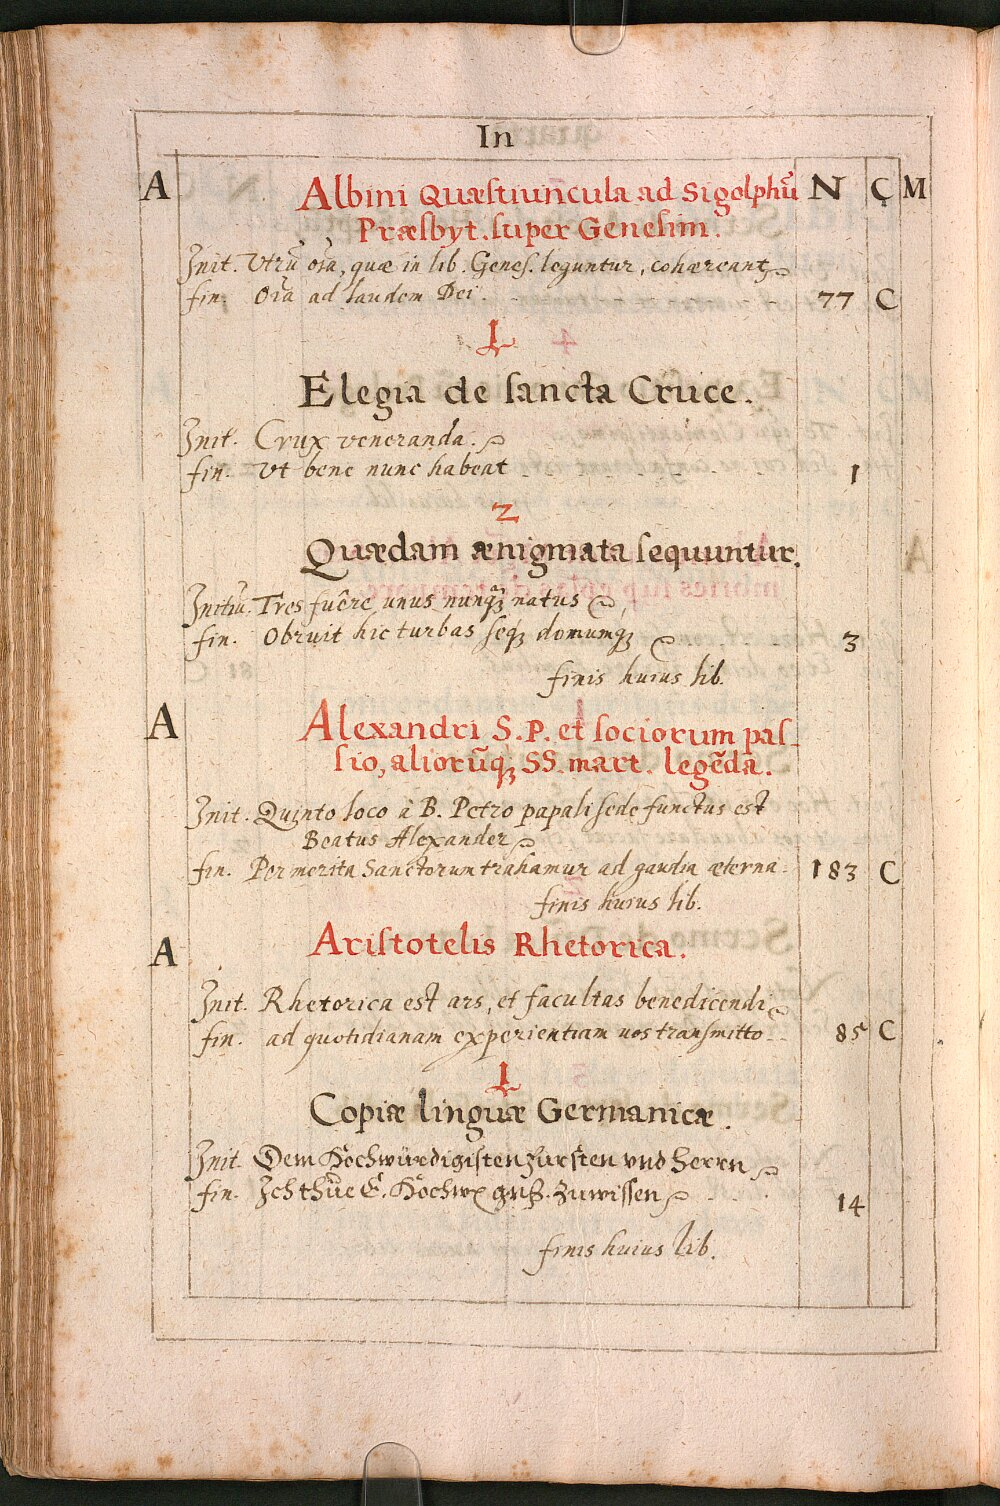 In
A Albini Quæstiuncula ad Sigolphū N C M
Præsbyt. super Genesim.
Init. Utrū oīa, quæ in lib. Genes. leguntur, cohæreant
fin. Oīa ad laudem Dei. 77 C
1
Elegia de sancta Cruce.
Init. Crux veneranda.
fin. Vt bene nunc habeat 1
2
Quædam ænigmata sequuntur.
Initiū. Tres fuêre unus nunq̃ natus
fin. Obruit hic turbas seq₃ domumq₃ 3
finis huius lib.
A Alexandri S. P. et sociorum pas-
sio, aliorūq₃ SS. mart. legēda.
Init. Quinto loco à B. Petro papali sede functus est
Beatus Alexander
fin. Per merita Sanctorum trahamur ad gaudia æterna. 183 C
finis huius lib.
A Aristotelis Rhetorica.
Init. Rhetorica est ars, et facultas benedicendi
fin. ad quotidianam experientiam uos transmitto 85 C
1
Copiæ linguæ Germanicæ.
Init. Dem Hochwürdigisten Fürsten vnd Herrn
fin. Ich thue E. Hochw. zuwissen 14
finis huius lib.